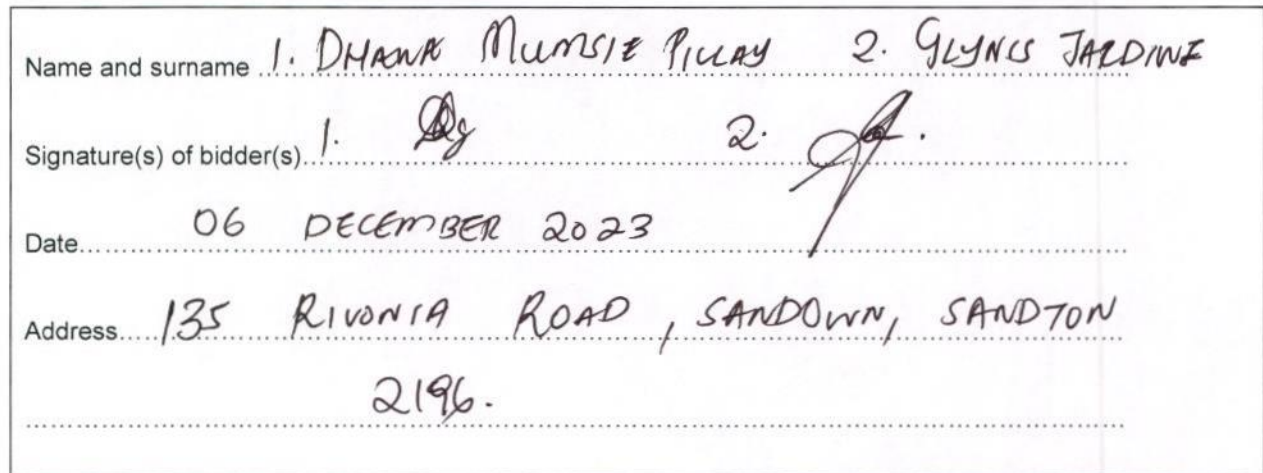 Name and surname 1. DHANA MUMSIE PILLAY 2. GLYNIS JARDINE
Signature(s) of bidder(s) 1. 2.
Date 06 DECEMBER 2023
Address 135 RIVONIA ROAD, SANDOWN, SANDTON
2196.